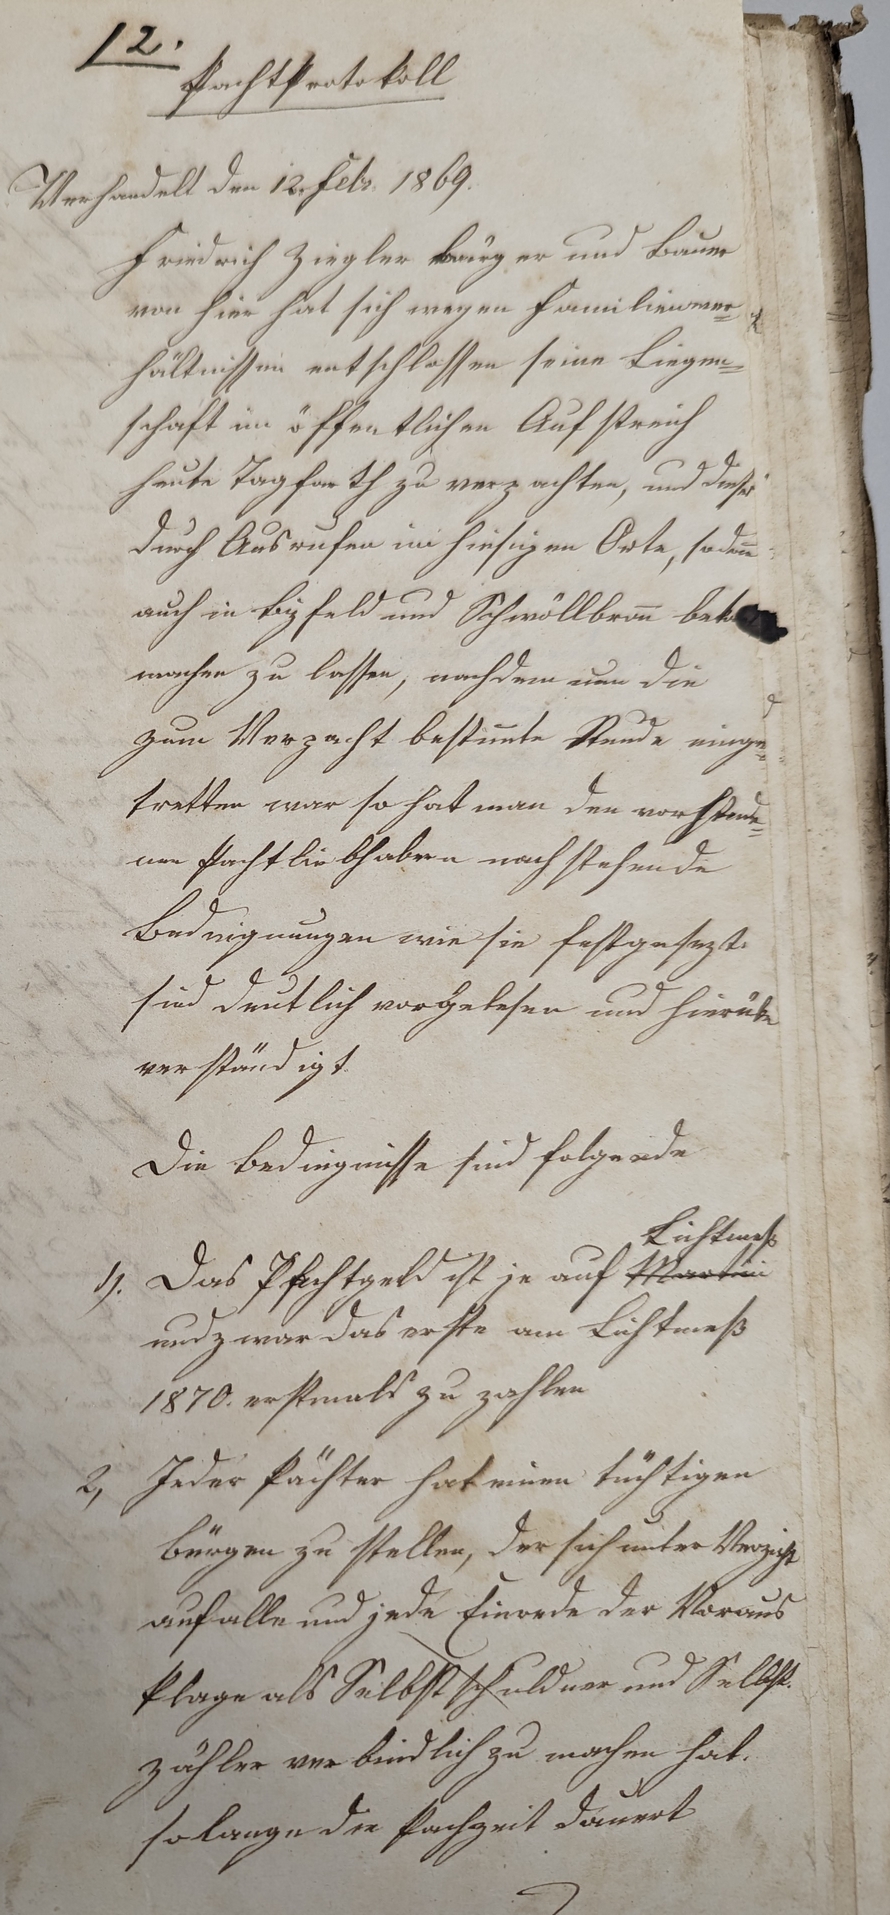 12.
Pachtprotokoll
Verhandelt den 12. Feb. 1869.
Friedrich Ziegler bürger und Bauer
von hier hat sich wegen Familienver=
hältnissen entschlossen seine Liegen=
schaft im öffentlichen Aufstreich
heute Tagfarth zu verpachten, und dieses
durch Ausrufen im hiesigen Orte, sodann
auch in Bizfeld und Schwöllbronn
machen zu lassen, nachdem nun die
zum Verpacht bestimmte Stunde einge=
tretten war so hat man den
Pachtliebhabern nachstehende
Bedeignungen wie sie festgesezt
sind deutlich vorgelesen und hierüber
verständigt.
Die Bedingnisse sind folgende
Lichtmeß
1). Das Pachtgeld ist je auf Martini
und zwar das erste am Lichtmeß
1870. erstmals zu zahlen
2, Jeder Pächter hat einen tüchtigen
bürgen zu stellen, der sich unter Verzicht
auf alle und jede Einrede der Voraus
klage als Selbstschuldner und Selbst.
zähler verbindlich zu machen hat.
so lange die Pachzeit dauert